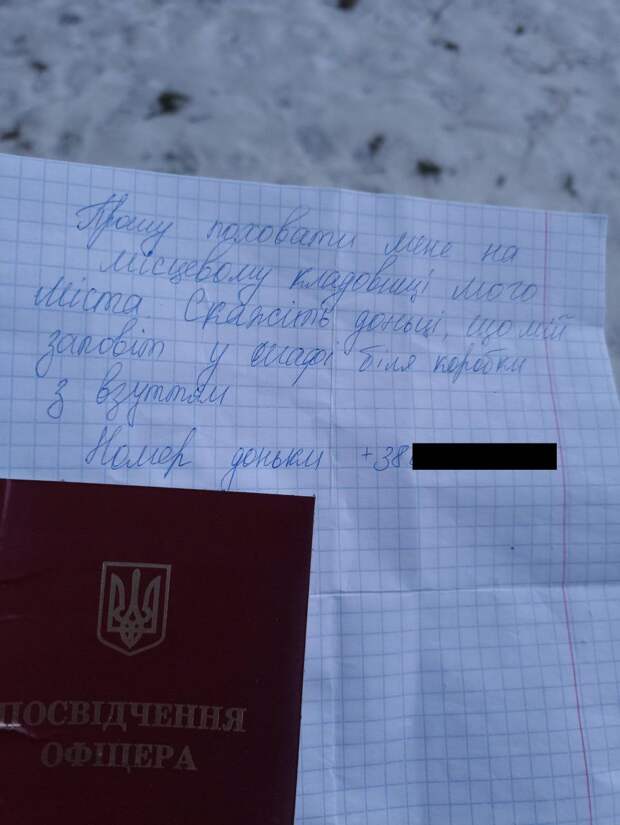 Прошу поховати мене на
місцевому кладовищі мого
міста. Скажіть доньці, що мій
заповіт у шафі біля коробки
з взуттям
Номер доньки +38
ПОСВІДЧЕННЯ
ОФІЦЕРА